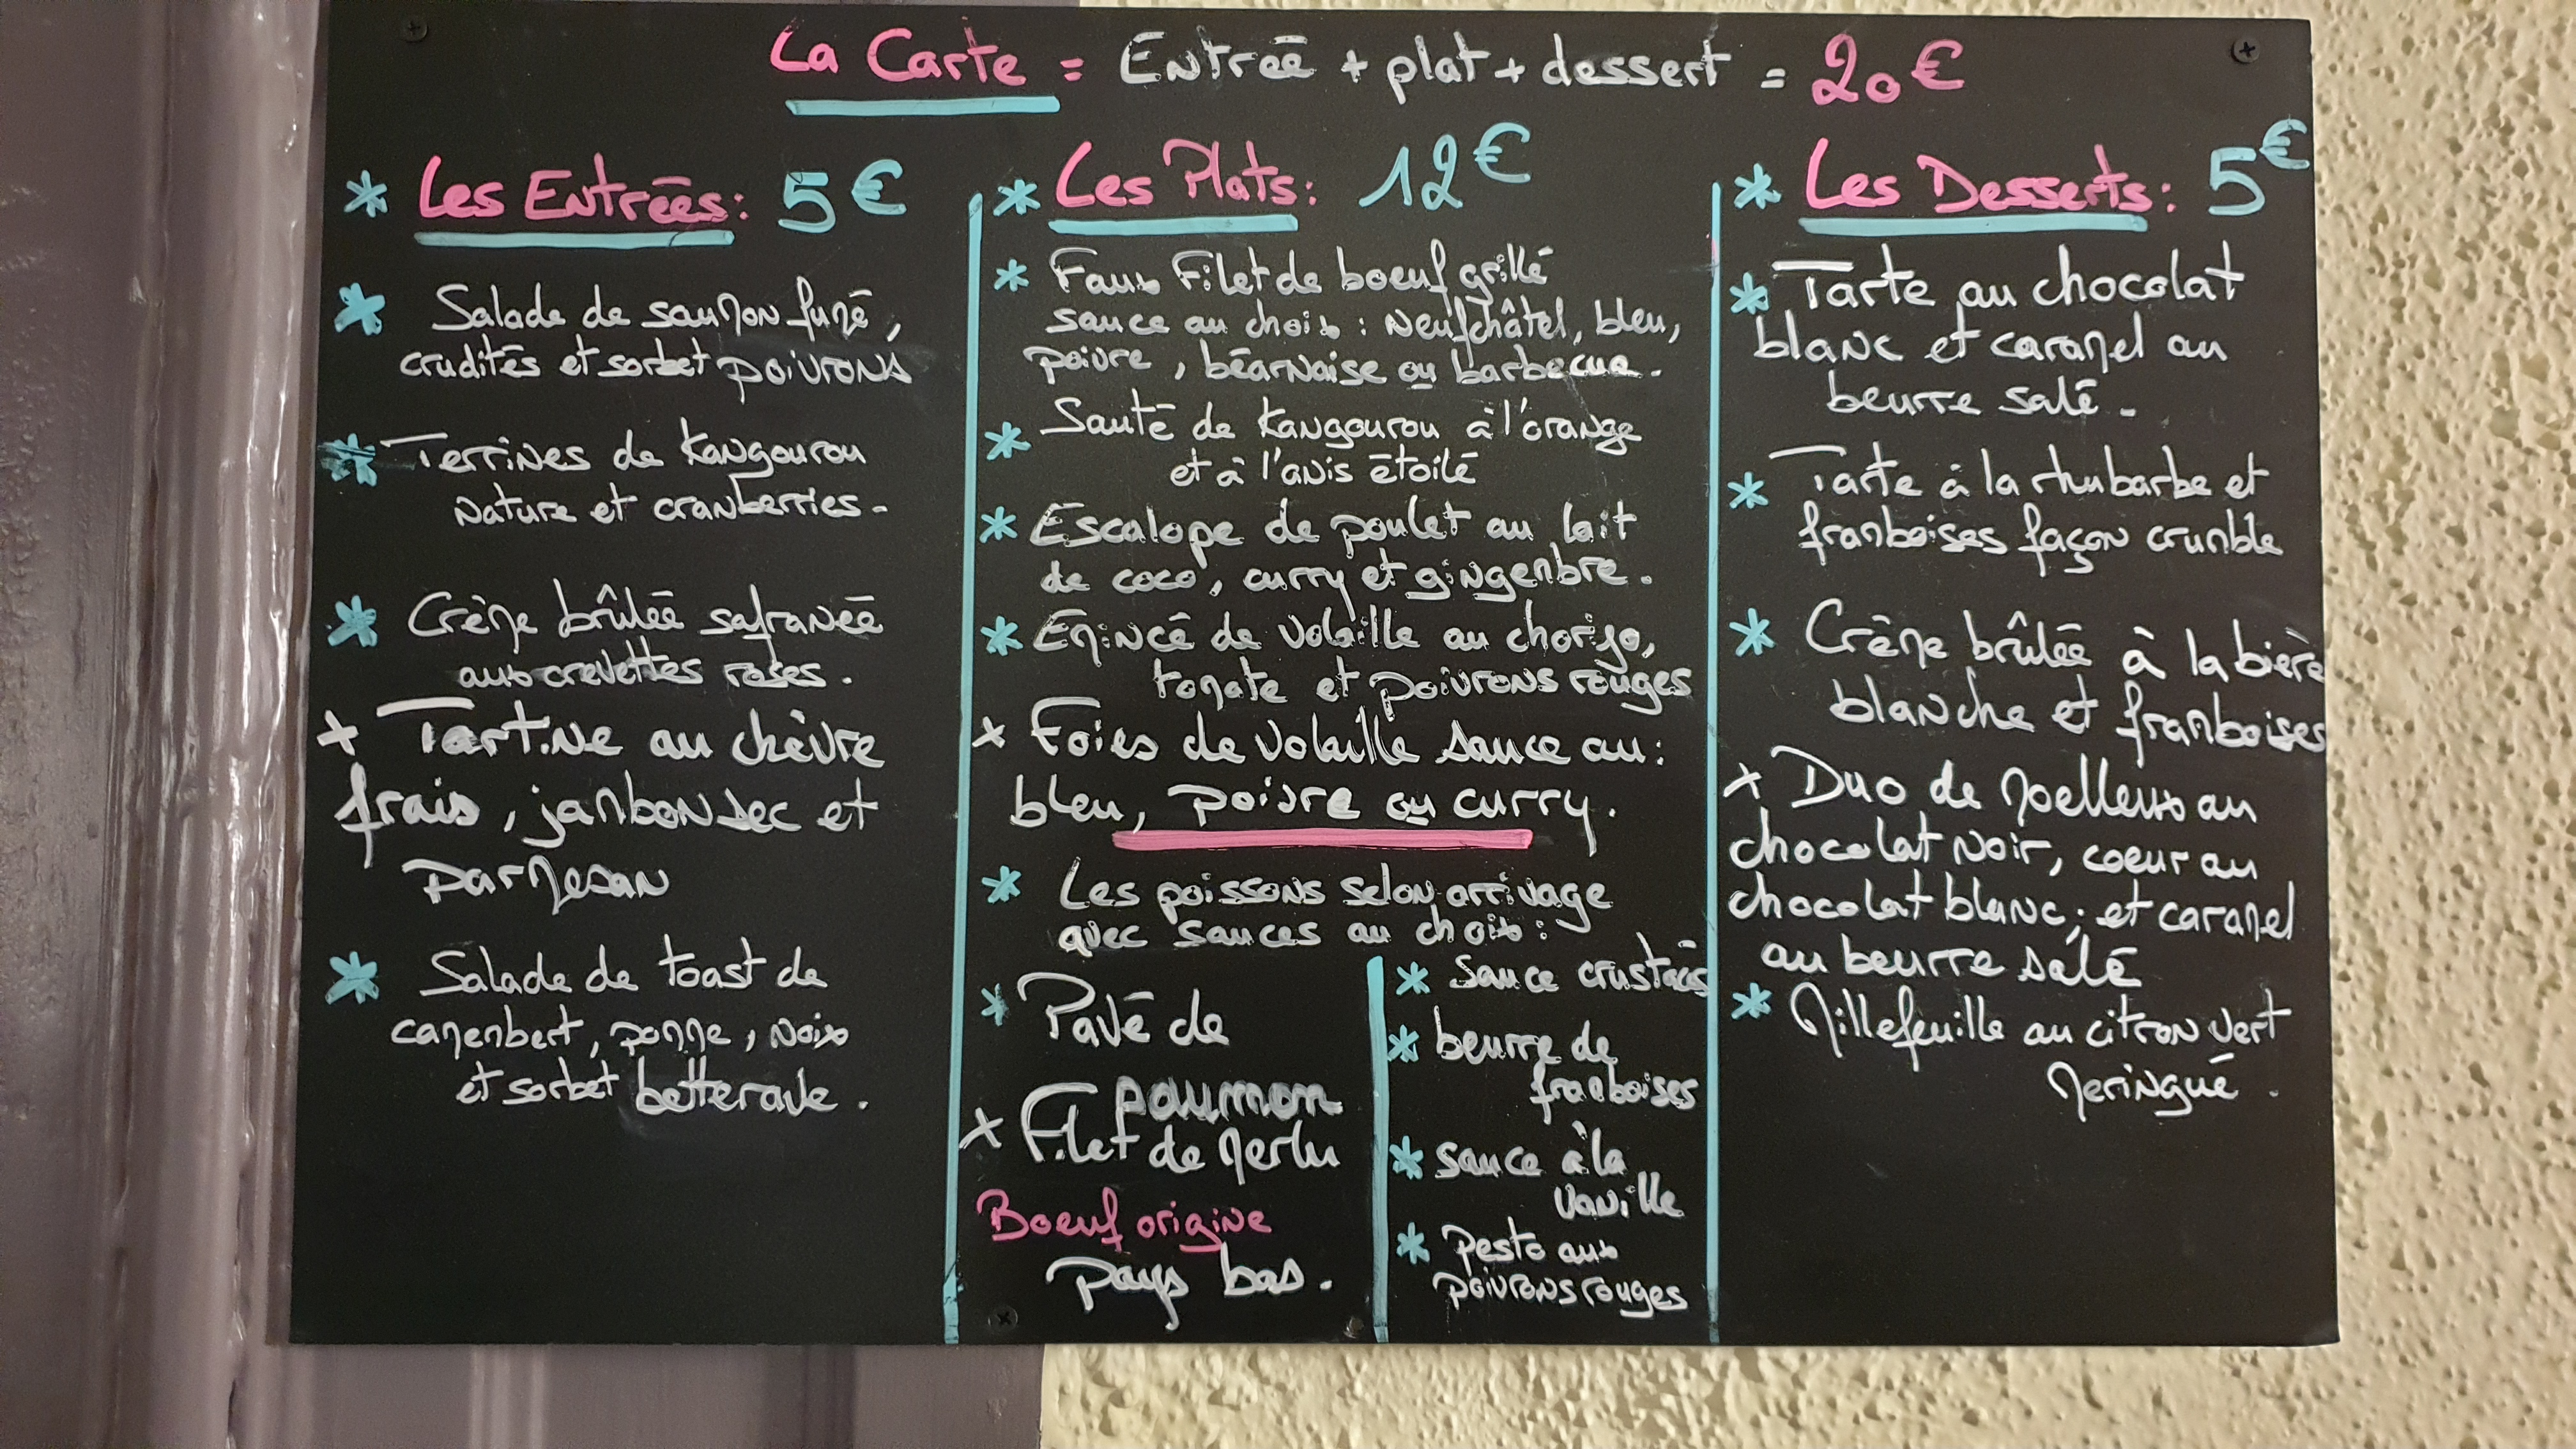 La Carte = Entrée + plat + dessert = 20€
* Les Entrées: 5€
* Salade de saumon fumé,
crudités et sorbet poivrons
* Terrines de Kangourou
nature et cranberries.
* Crème brûlée safranée
aux crevettes roses.
+ Tartine au chèvre
frais, jambon sec et
parmesan
* Salade de toast de
camembert, pomme, noix
et sorbet betterave.
* Les Plats: 12€
* Faux Filet de boeuf grillé
sauce au choix : Neufchâtel, bleu,
poivre, béarnaise ou barbecue.
* Sauté de Kangourou à l'orange
et à l'anis étoilé
* Escalope de poulet au lait
de coco, curry et gingembre.
* Emincé de volaille au chorizo,
tomate et poivrons rouges
+ Foies de volaille sauce au:
bleu, poivre ou curry.
* Les poissons selon arrivage
avec sauces au choix:
* Pavé de
saumon
+ Filet de merlu
Boeuf origine
pays bas.
* Sauce crustacés
* beurre de
framboises
* sauce à la
vanille
* pesto aux
poivrons rouges
* Les Desserts: 5€
* Tarte au chocolat
blanc et caramel au
beurre salé.
* Tarte à la rhubarbe et
framboises façon crumble
* Crème brûlée à la bière
blanche et framboises
+ Duo de moelleux au
chocolat noir, coeur au
chocolat blanc; et caramel
au beurre salé
* Millefeuille au citron vert
meringué.